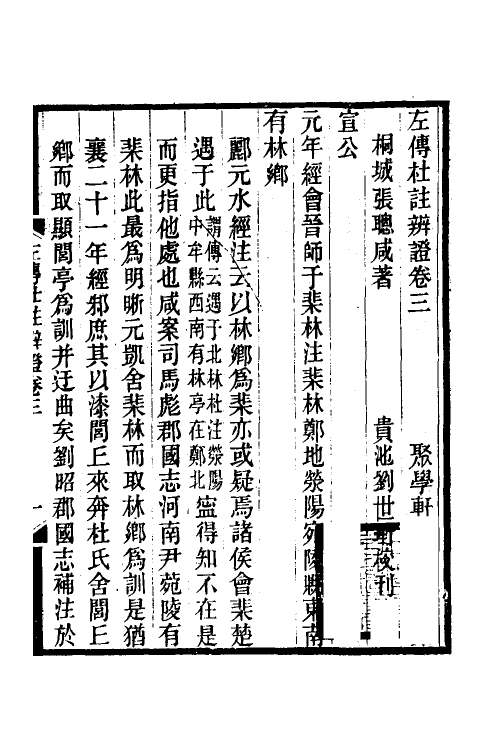 左傳杜註辨證卷三 聚學軒
桐城張聰咸著 貴池劉世珩校刊
宣公
元年經會晉師于棐林注棐林鄭地滎陽宛陵縣東南
有林鄉
酈元水經注云以林鄉爲棐亦或疑焉諸侯會棐楚
遇于此謂傳云遇于北林杜注滎陽中牟縣西南有林亭在鄭北寍得知不在是
而更指他處也咸案司馬彪郡國志河南尹菀陵有
棐林此最爲明晰元凱舍棐林而取林鄉爲訓是猶
襄二十一年經邾庶其以漆閭丘來奔杜氏舍閭丘
鄉而取顯閭亭爲訓并迂曲矣劉昭郡國志補注於
左傳杜註辨證卷三 一